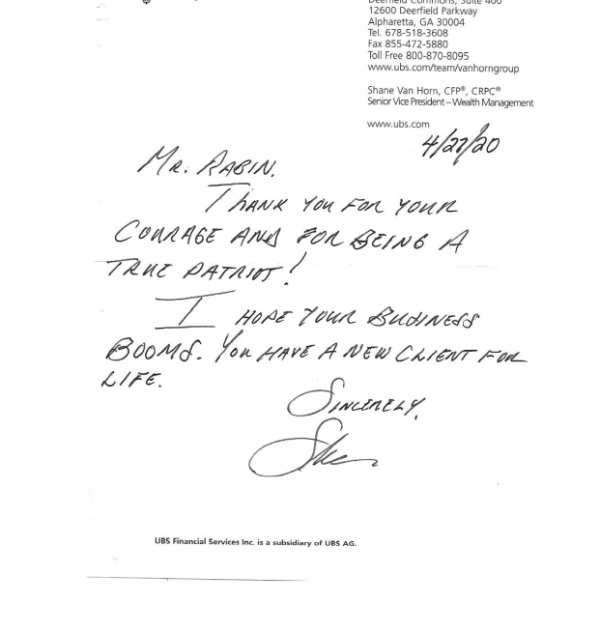 Deerfield Commons, Suite 400
12600 Deerfield Parkway
Alpharetta, GA 30004
Tel. 678-518-3608
Fax 855-472-5880
Toll Free 800-870-8095
www.ubs.com/team/vanhorngroup
Shane Van Horn, CFP®, CRPC®
Senior Vice President – Wealth Management
www.ubs.com
4/27/20
MR. RABIN.
THANK YOU FOR YOUR
COURAGE AND FOR BEING A
TRUE PATRIOT!
I HOPE YOUR BUSINESS
BOOMS. YOU HAVE A NEW CLIENT FOR
LIFE.
SINCERELY,
Shane
UBS Financial Services Inc. is a subsidiary of UBS AG.